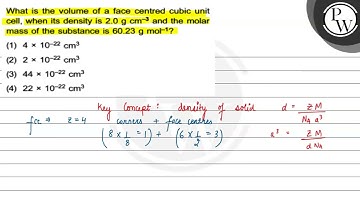 What is the volume of a face centred cubic unit
cell, when its density is 2.0 g cm⁻³ and the molar
mass of the substance is 60.23 g mol⁻¹?
(1) 4 × 10⁻²² cm³
(2) 2 × 10⁻²² cm³
(3) 44 × 10⁻²² cm³
(4) 22 × 10⁻²² cm³
PW
Key Concept : density of solid d = ZM / NA a³
fcc ⇒ z=4 corners + face centres
(8 × 1/8 = 1) + (6 × 1/2 = 3) a³ = ZM / d NA